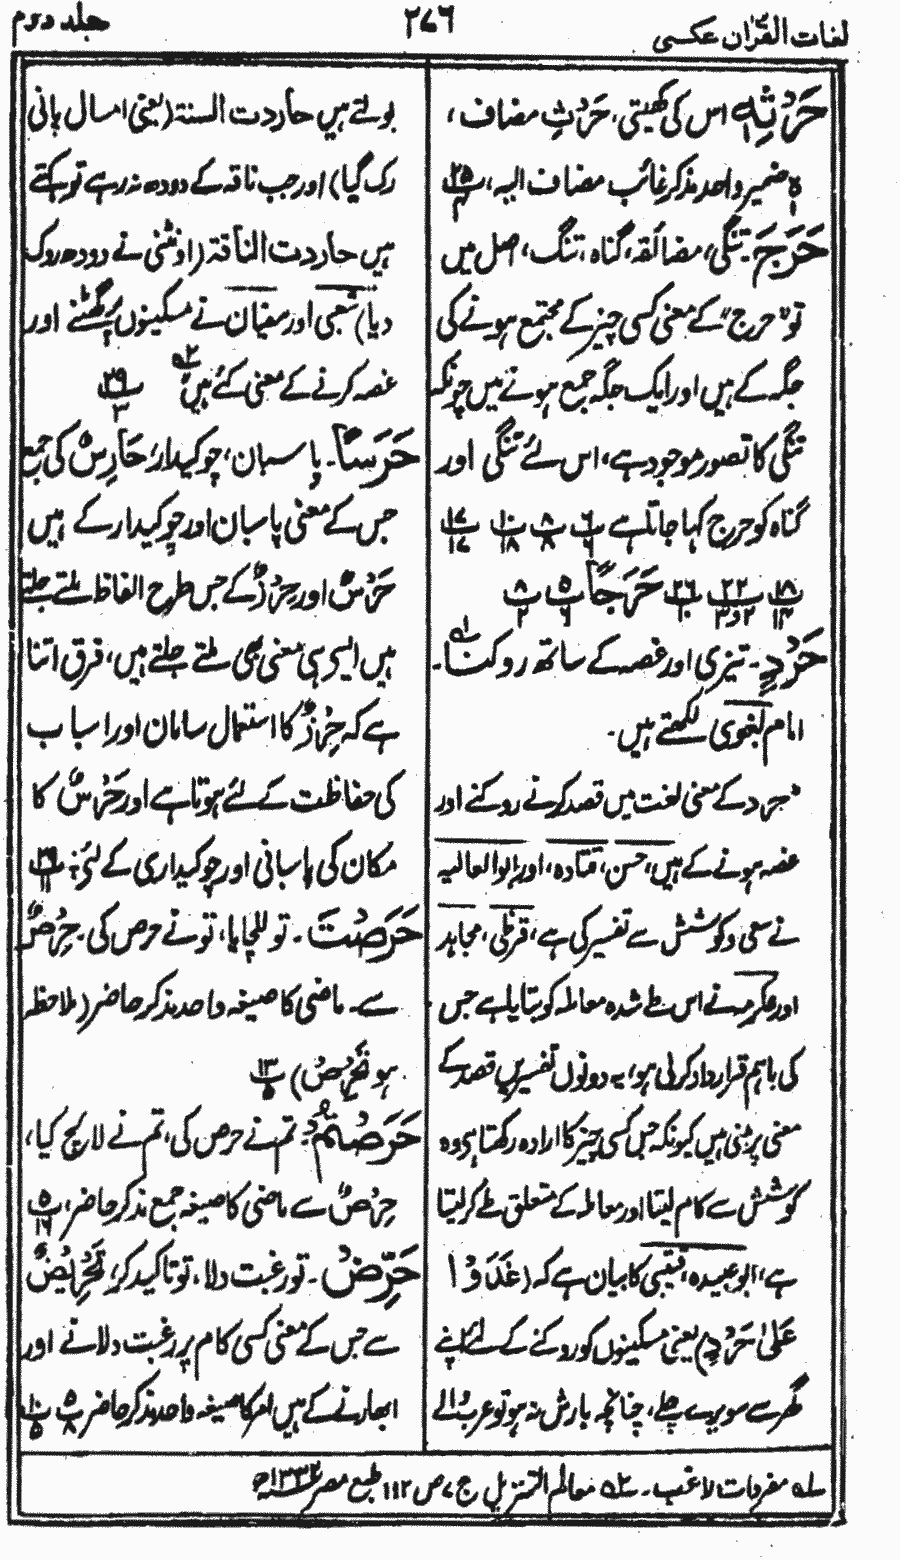 لغات القرآن عکسی
۲۷۶
جلد دوم
حَرْثِہٖ اس کی کھیتی، حَرْثِ مضاف،
ہٖ ضمیر واحد مذکر غائب مضاف الیہ، پ۲۵
حَرَجٌ۔ تنگی، مضائقہ، گناہ، تنگ، اصل میں
تو "حرج" کے معنی کسی چیز کے مجتمع ہونے کی
جگہ کے ہیں اور ایک جگہ جمع ہونے میں چونکہ
تنگی کا تصور موجود ہے، اس لئے تنگی اور
گناہ کو حرج کہا جاتا ہے پ۶ پ۸ پ۱۰ پ۱۷
پ۱۸ پ۲۲ پ۲۶ حَرَجًا پ۵ پ۸
حَرْدٍ۔ تیزی اور غصہ کے ساتھ روکنا۔
امام لغوی لکھتے ہیں۔
"حرد کے معنی لغت میں قصد کرنے روکنے اور
غصہ ہونے کے ہیں، حسن، قتادہ، اور ابو العالیہ
نے سعی و کوشش سے تفسیر کی ہے، قرظی، مجاہد
اور عکرمہ نے اس طے شدہ معاملہ کو بتایا ہے جس
کی باہم قرارداد کر لی ہو، یہ دونوں تفسیریں قصد کے
معنی پر مبنی ہیں کیونکہ جس کسی چیز کا ارادہ رکھتا ہی وہ
کوشش سے کام لیتا اور معاملہ کے متعلق طے کر لیتا
ہے، ابو عبیدہ، قتیبی کا بیان ہے کہ (غَدَوْا
عَلٰی حَرْدٍ) یعنی مسکینوں کو روکنے کے لئے اپنے
گھر سے سویرے چلے، چنانچہ بارش نہ ہو تو عرب والے
بولتے ہیں حاردت السنۃ (یعنی امسال پانی
رک گیا) اور جب ناقہ کے دودھ نہ رہے تو کہتے
ہیں حاردت الناقۃ (اونٹنی نے دودھ روک
دیا) شعبی اور سفیان نے مسکینوں پر گھٹنے اور
غصہ کرنے کے معنی کئے ہیں ۲ پ۲۹
حَرَسًا۔ پاسبان، چوکیدار، حَارِسٌ کی جمع
جس کے معنی پاسبان اور چوکیدار کے ہیں
حَرْسٌ اور حِرْزٌ کے جس طرح الفاظ ملتے جلتے
ہیں ایسی ہی معنی بھی ملتے جلتے ہیں، فرق اتنا
ہے کہ حِرْزٌ کا استعمال سامان اور اسباب
کی حفاظت کے لئے ہوتا ہے اور حَرْسٌ کا
مکان کی پاسبانی اور چوکیداری کے لئے پ۲۹
حَرَصْتَ۔ تو للچایا، تو نے حرص کی۔ حِرْصٌ
سے۔ ماضی کا صیغہ واحد مذکر حاضر (ملاحظہ
ہو تَحْرِصْ) پ۱۳
حَرَصْتُمْ۔ تم نے حرص کی، تم نے لالچ کیا،
حِرْصٌ سے ماضی کا صیغہ جمع مذکر حاضر، پ۵
حَرِّضْ۔ تو رغبت دلا، تو تاکید کر، تَحْرِیْضٌ
سے جس کے معنی کسی کام پر رغبت دلانے اور
ابھارنے کے ہیں امر کا صیغہ واحد مذکر حاضر پ۵ پ۱۰
۱ مفردات لاغب۔ ۲ معالم التنزیل ج ۷ ص ۱۱۲ طبع مصر ۱۳۳۲ھ